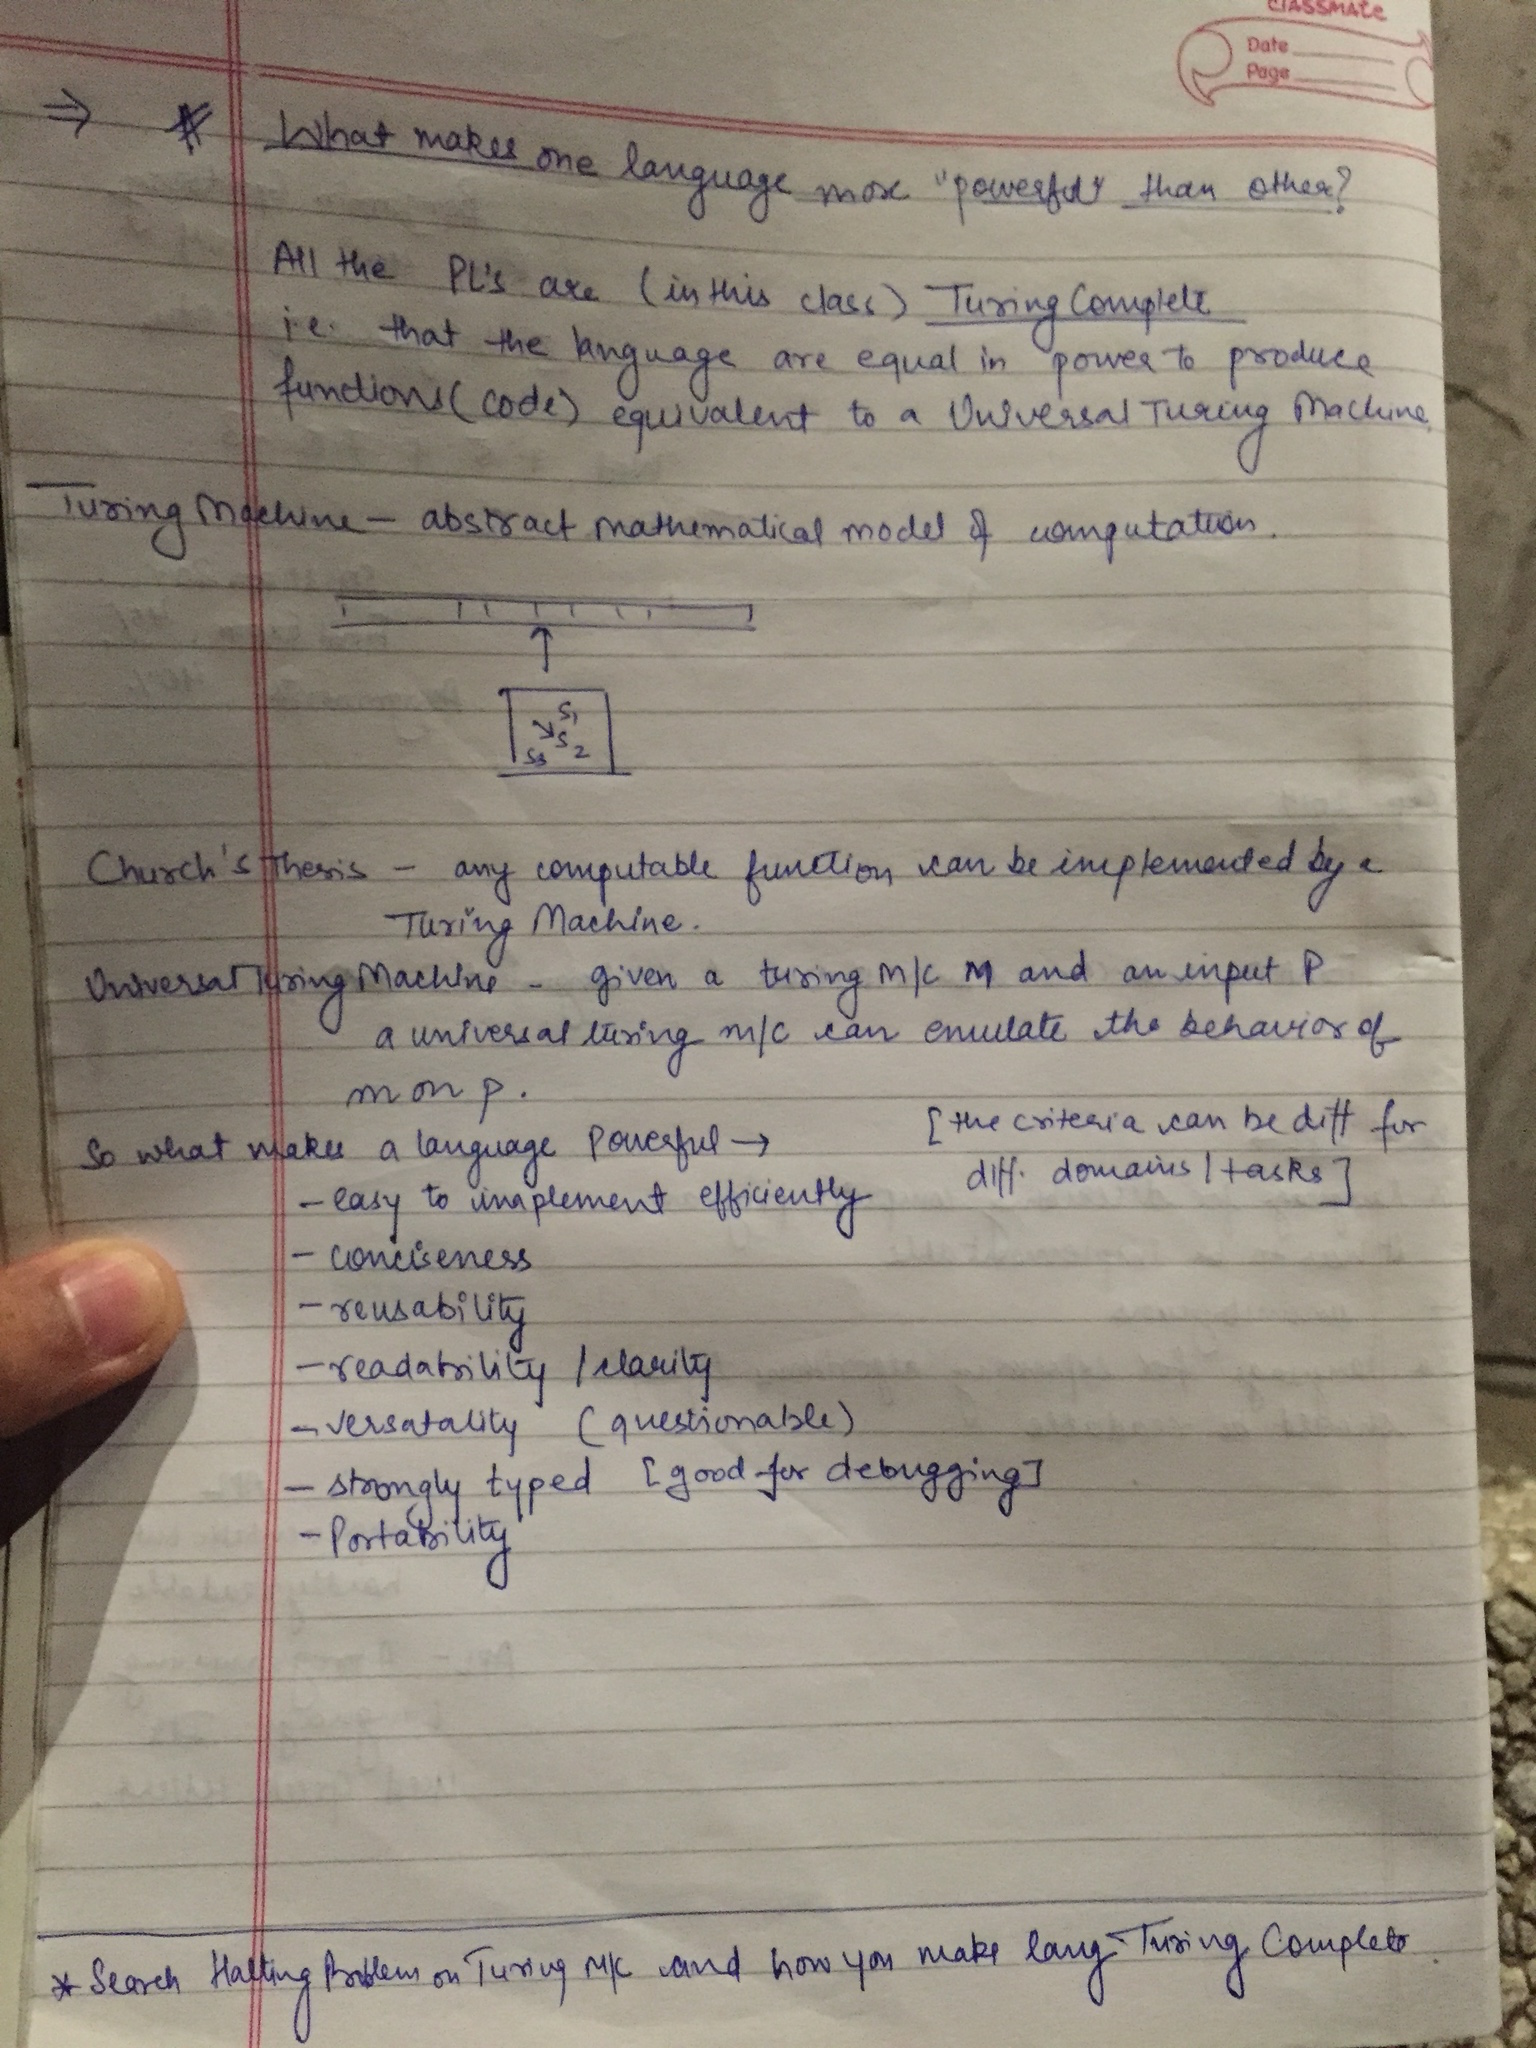 classmate
Date
Page
⇒ * What makes one language more "powerful" than other?
All the PL's are (in this class) Turing Complete
i.e. that the language are equal in power to produce
functions (code) equivalent to a Universal Turing Machine.
Turing Machine - abstract mathematical model of computation.
S1
S2
S3
Church's Thesis - any computable function can be implemented by a
Turing Machine.
Universal Turing Machine - given a turing m/c M and an input P
a universal turing m/c can emulate the behavior of
m on p.
So what makes a language Powerful →
[the criteria can be diff for
diff. domains / tasks]
- easy to implement efficiently
- conciseness
- reusability
- readability / clarity
- versatality (questionable)
- strongly typed [good for debugging]
- Portability
* Search Halting Problem on Turing M/c and how you make lang Turing Complete